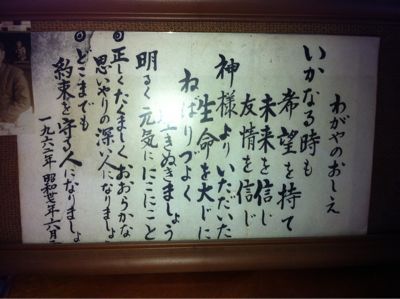 わがやのおしえ
いかなる時も
希望を持て
未来を信じ
友情を信じ
神様よりいただいた
生命を大じに
ねばりづよく
生きぬきましょう
明るく元気ににこにこと
◎正しくたくましくおおらかな
思いやりの深い人になりましょ
◎どこまでも
約束を守る人になりましょ
一九六二年 昭和卅七年 六月